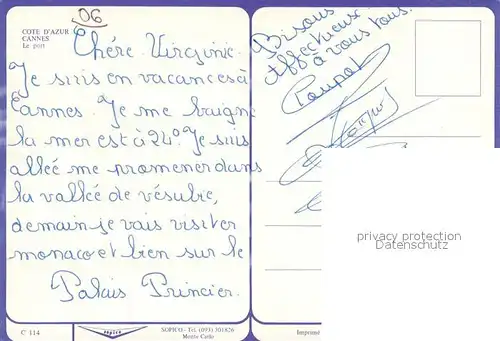 06
COTE D'AZUR
CANNES
Le port
Chére Virginie.
Je suis en vacances à
Cannes. Je me baigne
la mer est à 24°. Je suis
allée me promener dans
la vallée de vésubie,
demain je vais visiter
monaco et bien sur le
Palais Princier.
Bisous
Affectueux
à vous tous.
privacy protection
Datenschutz
C 114
SOPICO - Tél. (093) 301826
Monte Carlo
Imprimé